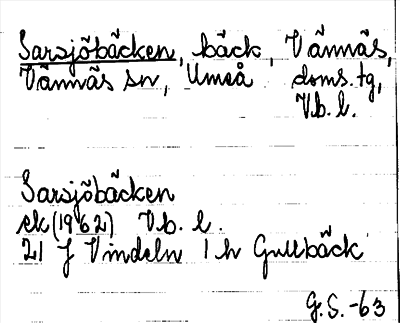 Sarsjöbäcken, bäck, Vännäs,
Vännäs sn, Umeå doms.tg,
V.b.l.
Sarsjöbäcken
ek(1962) V.b.l.
21 J Vindeln 1 h Gullbäck
G.S.-63